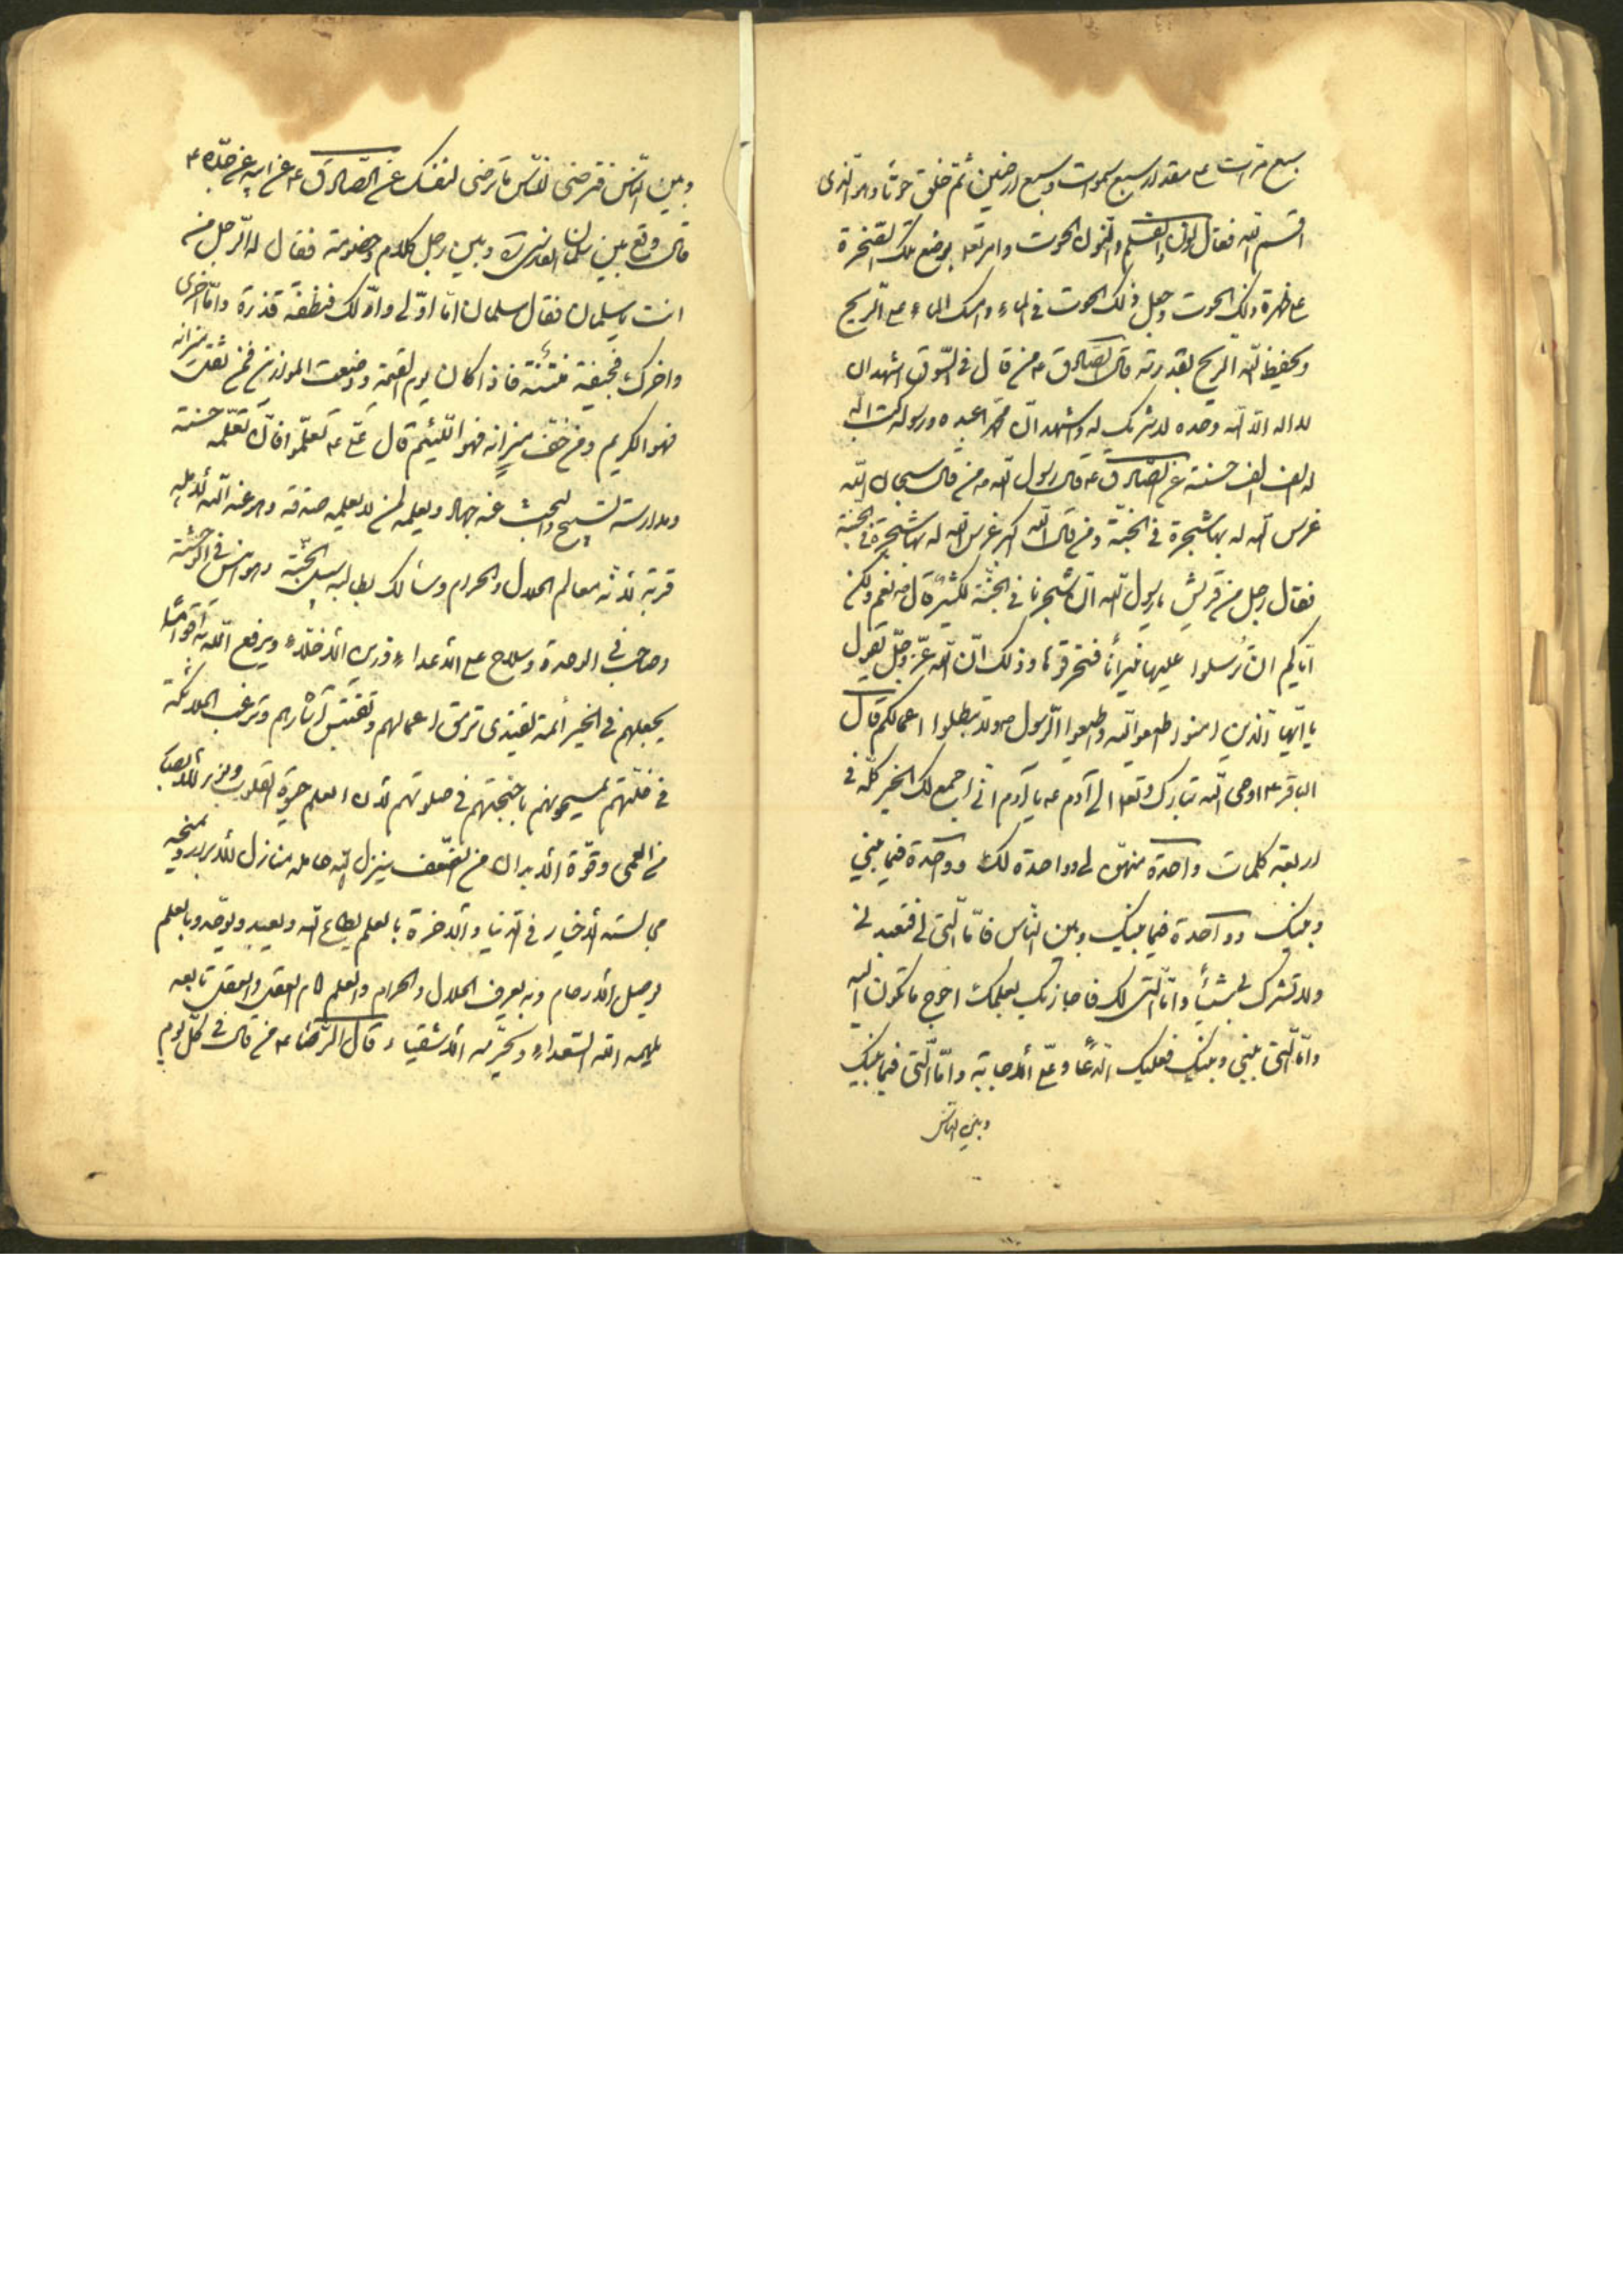 سبع مرات على مقدار سبع سموات وسبع ارضين ثم خلق حوتا وهو الذى
اقسم الله فقال ن والقلم والنون الحوت وامر تعالى بوضع تلك الصخرة
على ظهر ذلك الحوت وجعل ذلك الحوت فى الماء وامسك الماء على الريح
ويحفظ الله الريح بقدرته قال الصادق ع من قال فى السوق اشهد ان
لا اله الا الله وحده لا شريك له واشهد ان محمدا عبده ورسوله كتب الله
له الف الف حسنة عن الصادق ع قال رسول الله ص من قال سبحان الله
غرس الله له بها شجرة فى الجنة ومن قال الله اكبر غرس الله له بها شجرة فى الجنة
فقال رجل من قريش يا رسول الله ان شجرنا فى الجنة لكثير قال ص نعم ولكن
اياكم ان ترسلوا عليها نيرانا فتحرقوها وذلك ان الله عز وجل يقول
يا ايها الذين امنوا اطيعوا الله واطيعوا الرسول ولا تبطلوا اعمالكم قال
الباقر ع اوحى الله تبارك وتعالى الى آدم ع يا آدم انى اجمع لك الخير كله فى
اربعة كلمات واحدة منهن لى وواحدة لك وواحدة فيما بينى
وبينك وواحدة فيما بينك وبين الناس فاما التى لى فتعبدنى
ولا تشرك بى شيئا واما التى لك فاجازيك بعملك احوج ما تكون اليه
واما التى بينى وبينك فعليك الدعا وعلى الاجابة واما التى فيما بينك
وبين الناس
وبين الناس فترضى للناس ما ترضى لنفسك عن الصادق ع عن ابيه عن جده ع
قال وقع بين سلمان الفارسى ره وبين رجل كلام وخصومة فقال له الرجل من
انت يا سلمان فقال سلمان اما اولى واولك فنطفة قذرة واما اخرى
واخرك فجيفة منتنة فاذا كان يوم القيمة ووضعت الموازين فمن ثقلت ميزانه
فهو الكريم ومن خفت ميزانه فهو اللئيم قال على ع تعلموا فان تعلمه حسنة
ومدارسته تسبيح والبحث عنه جهاد وتعليمه لمن لا يعلمه صدقة وهو عند الله لاهله
قربة لانه معالم الحلال والحرام وسالك بطالبه سبيل الجنة وهو انيس فى الوحشة
وصاحب فى الوحدة وسلاح على الاعداء وزين الاخلاء ويرفع الله به اقواما
يجعلهم فى الخير أئمة يقتدى ترمق اعمالهم وتقتبس آثارهم وترغب الملائكة
فى خلتهم يمسحونهم باجنحتهم فى صلوتهم لأن العلم حيوة القلوب ونور للأبصار
من العمى وقوة الابدان من الضعف ينزل الله حامله منازل الابرار ويمنحه
مجالسة الأخيار فى الدنيا والآخرة بالعلم يطاع الله ويعبد ويوحد وبالعلم
يوصل الأرحام وبه يعرف الحلال والحرام والعلم امام العقل والعقل تابعه
يلهمه الله السعداء ويحرمه الأشقياء قال الرضا ع من قال فى كل يوم